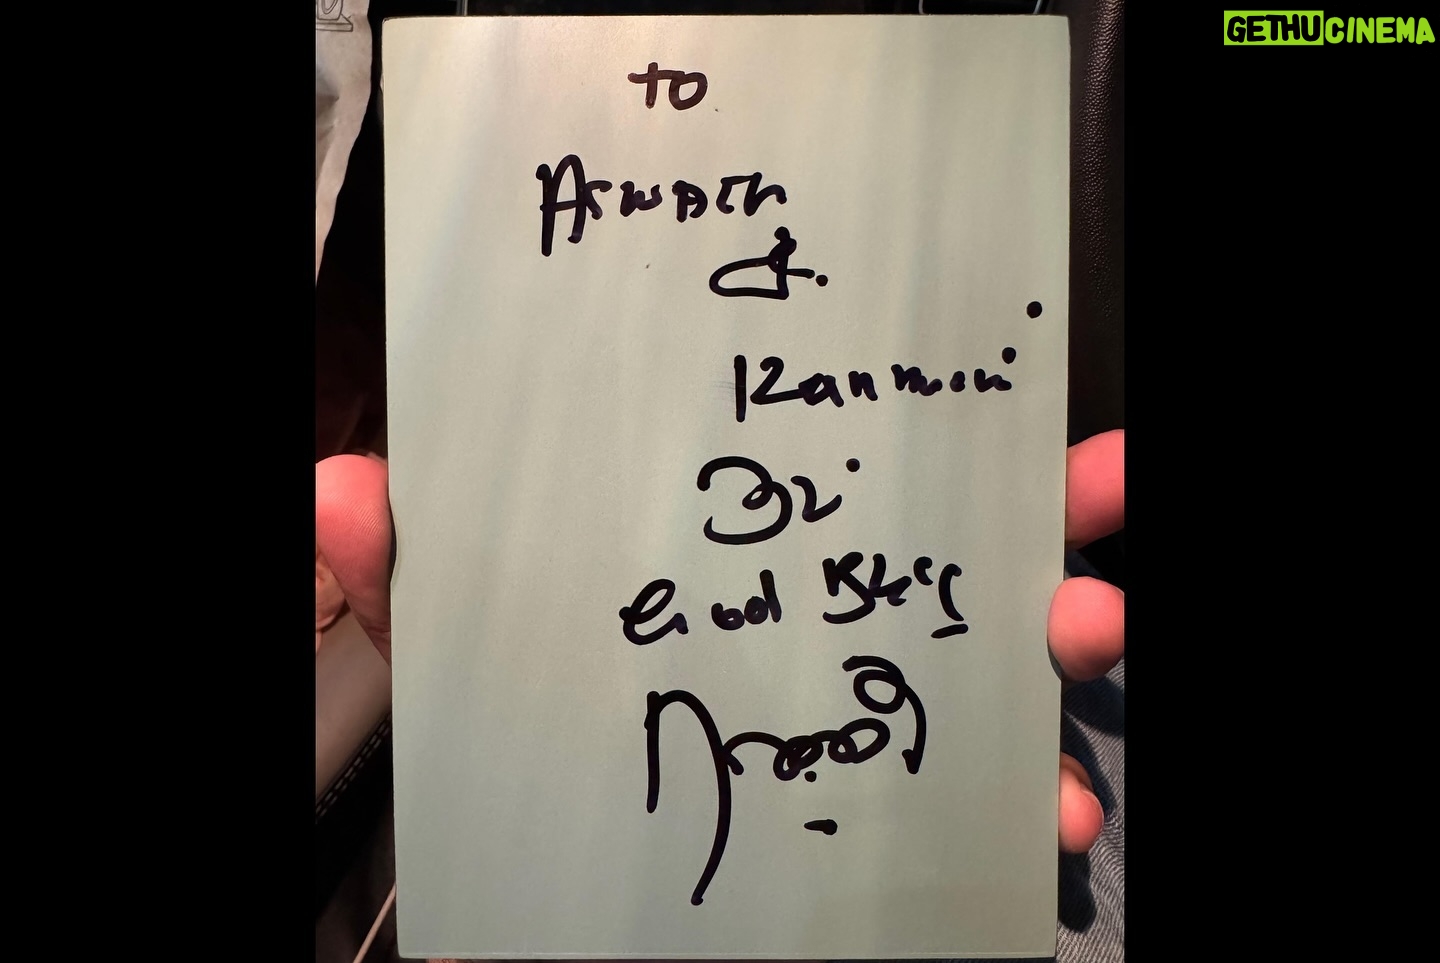 GETHUCINEMA
to
Aswath
&.
Kanmani
God Bless